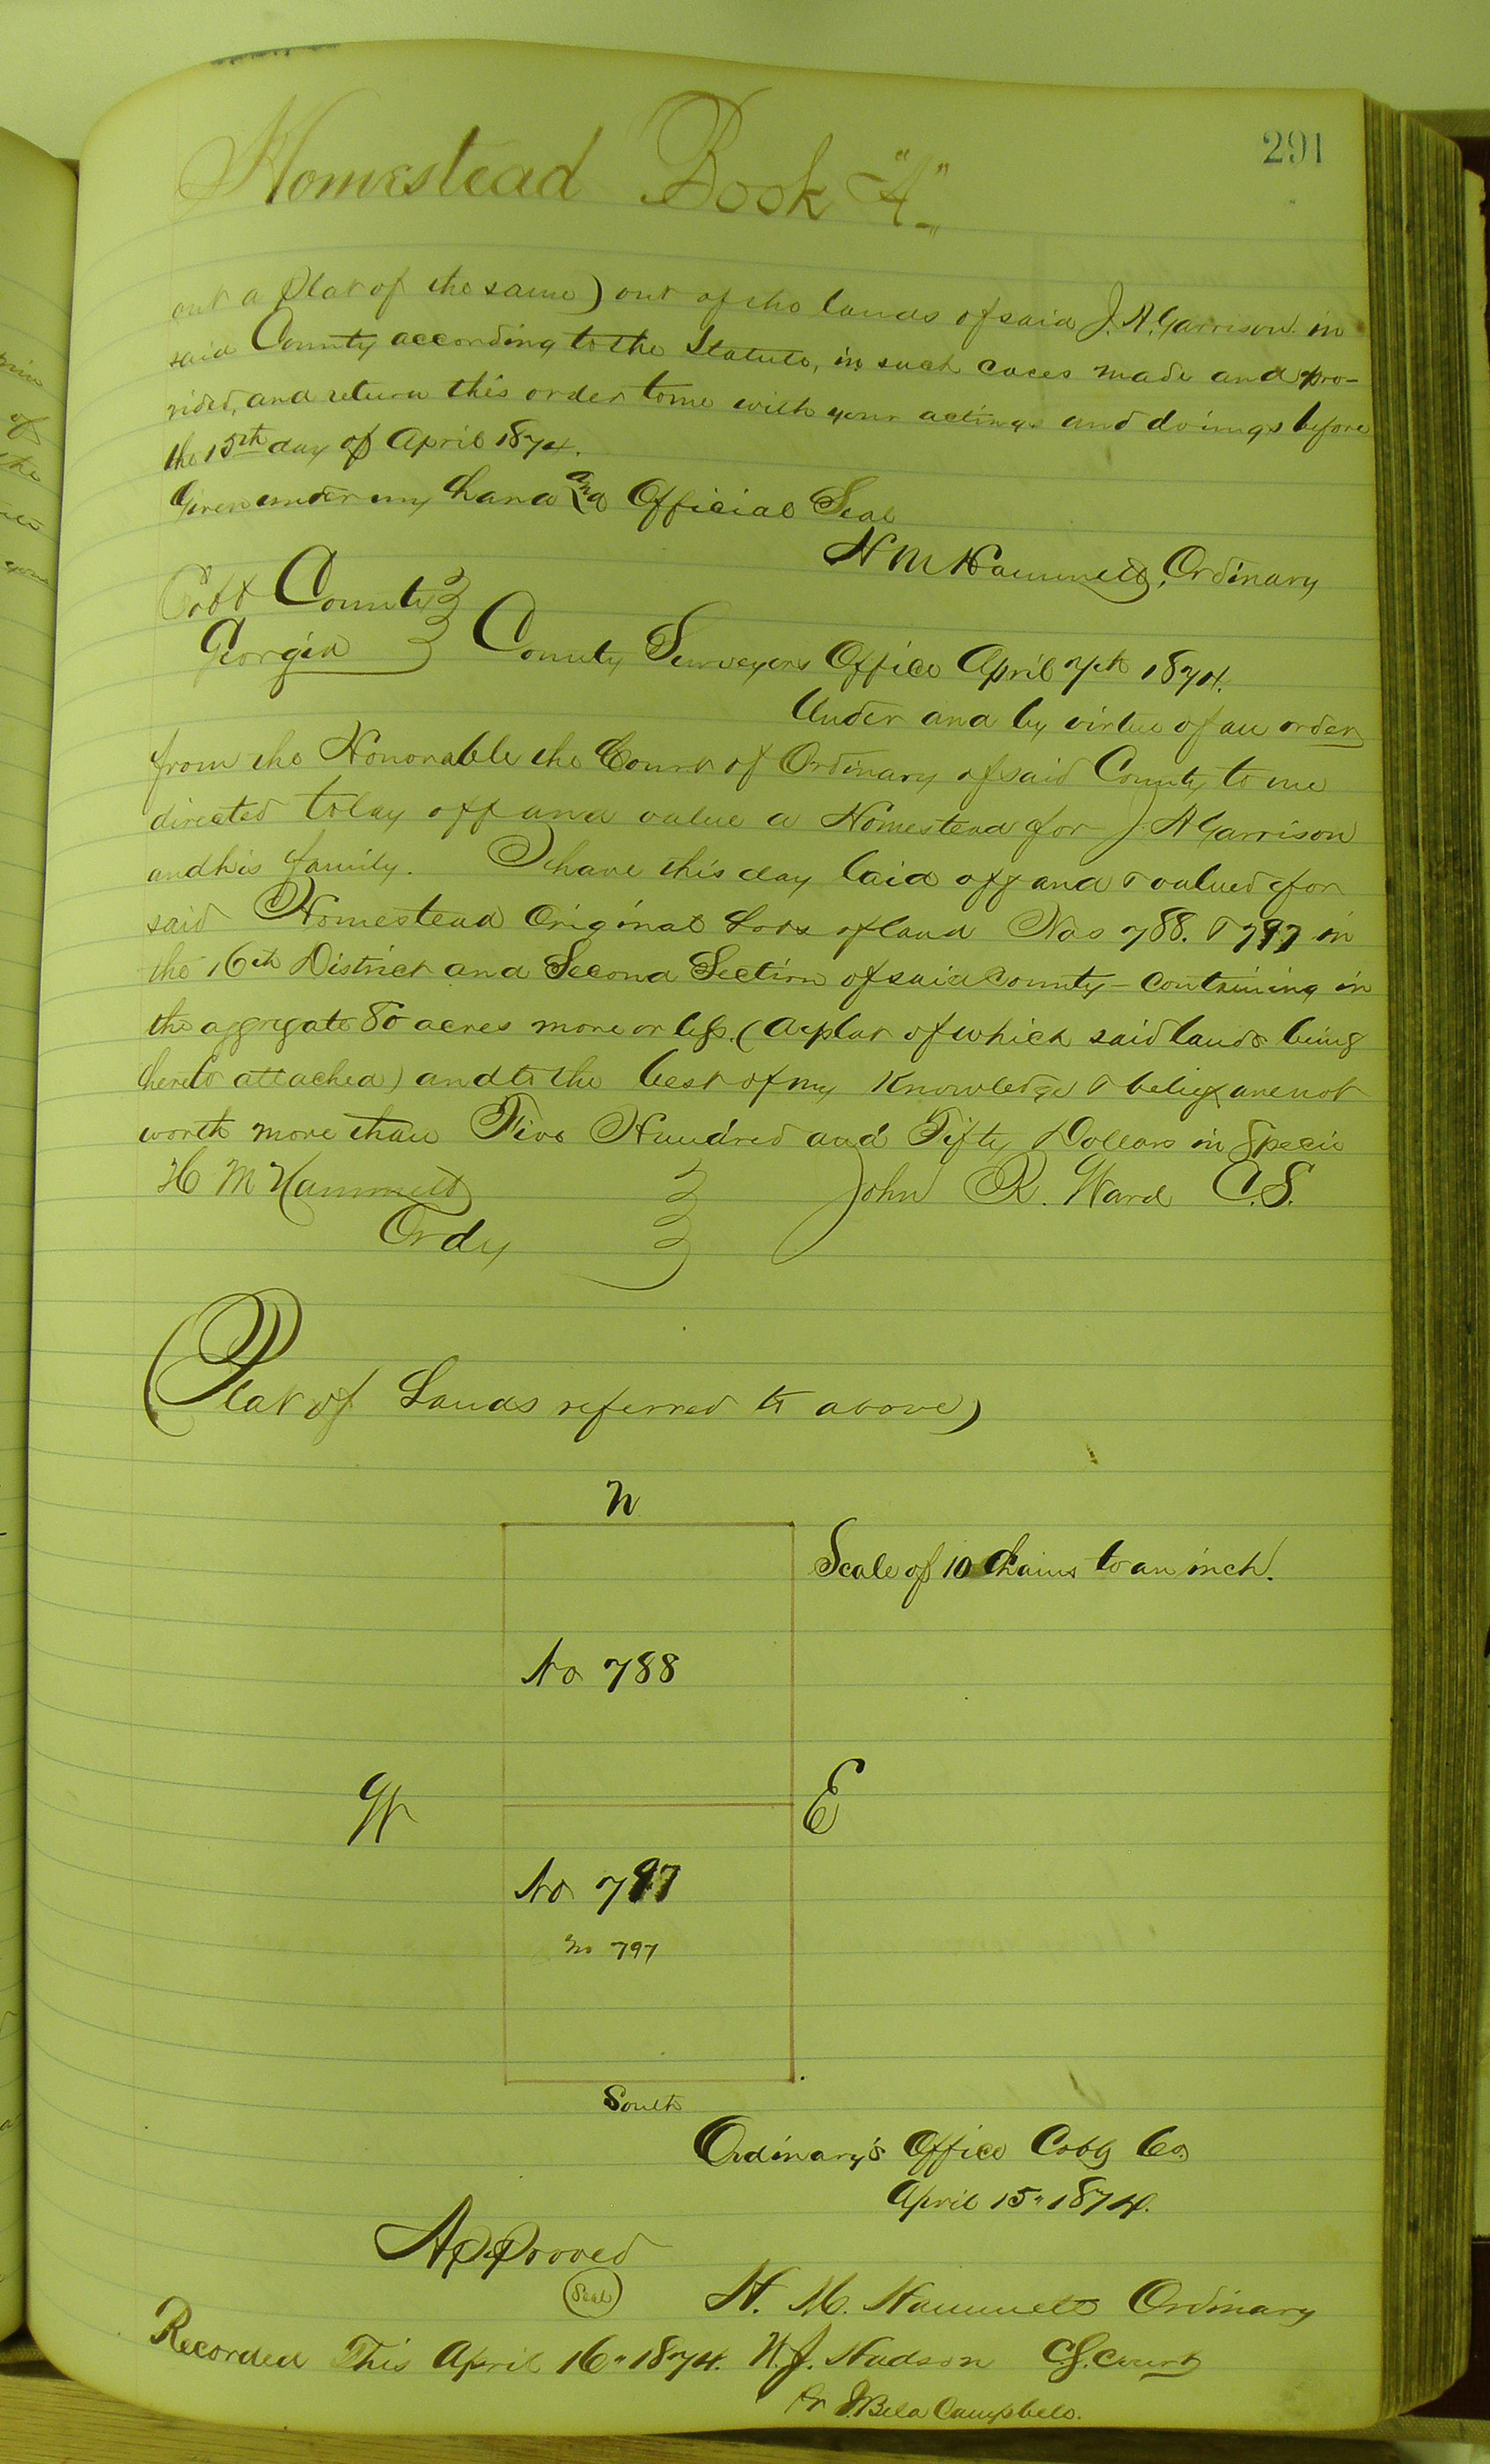 291
Homestead Book "A"
out a Plat of the same) out of the lands of said J. A. Garrison in
said County according to the Statute, in such cases made and pro-
vided, and return this order to me with your actings and doings before
the 15th day of April 1874.
Given under my hand and Official Seal
H M Hammett, Ordinary
Cobb County
Georgia
County Surveyors Office April 7th 1874.
Under and by virtue of an order
from the Honorable the Court of Ordinary of said County to me
directed to lay off and value a Homestead for J. A Garrison
and his family. I have this day laid off and & valued for
said Homestead Original Lots of land Nos 788. & 797 in
the 16th District and Second Section of said County - containing in
the aggregate 80 acres more or less. (A plat of which said lands being
hereto attached) and to the best of my Knowledge & belief are not
worth more than Five Hundred and Fifty Dollars in Specie
H M Hammett
John R. Ward C.S.
Ordy
(Plat of Lands referred to above)
N
Scale of 10 Chains to an inch.
No 788
W
E
No 797
No 797
South
Ordinary's Office Cobb Co.
April 15" 1874.
Approved
Seal
H. M. Hammett Ordinary
Recorded This April 16" 1874. W. J. Hudson C.S. Court
Pr J. Bela Campbell.